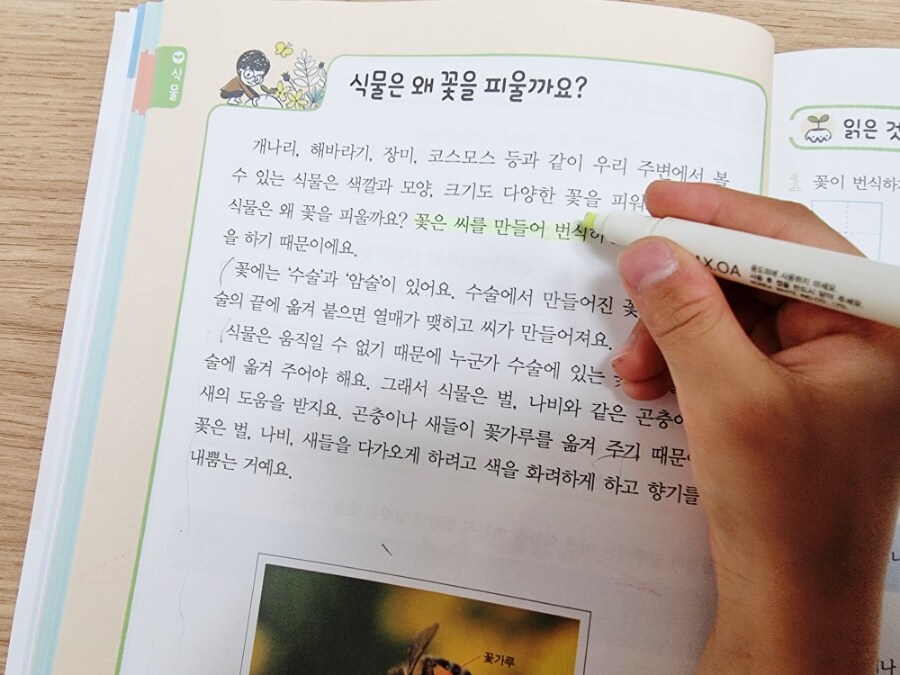 식물
식물은 왜 꽃을 피울까요?
개나리, 해바라기, 장미, 코스모스 등과 같이 우리 주변에서 볼
수 있는 식물은 색깔과 모양, 크기도 다양한 꽃을 피워
식물은 왜 꽃을 피울까요? 꽃은 씨를 만들어 번식하
을 하기 때문이에요.
꽃에는 '수술'과 '암술'이 있어요. 수술에서 만들어진
술의 끝에 옮겨 붙으면 열매가 맺히고 씨가 만들어져요.
식물은 움직일 수 없기 때문에 누군가 수술에 있는
술에 옮겨 주어야 해요. 그래서 식물은 벌, 나비와 같은 곤충
새의 도움을 받지요. 곤충이나 새들이 꽃가루를 옮겨 주기 때문
꽃은 벌, 나비, 새들을 다가오게 하려고 색을 화려하게 하고 향기를
내뿜는 거예요.
꽃가루
읽은 것
1 꽃이 번식하
용도외에 사용하지 마세요.
사용 후 캡을 반드시 닫아 주세요.